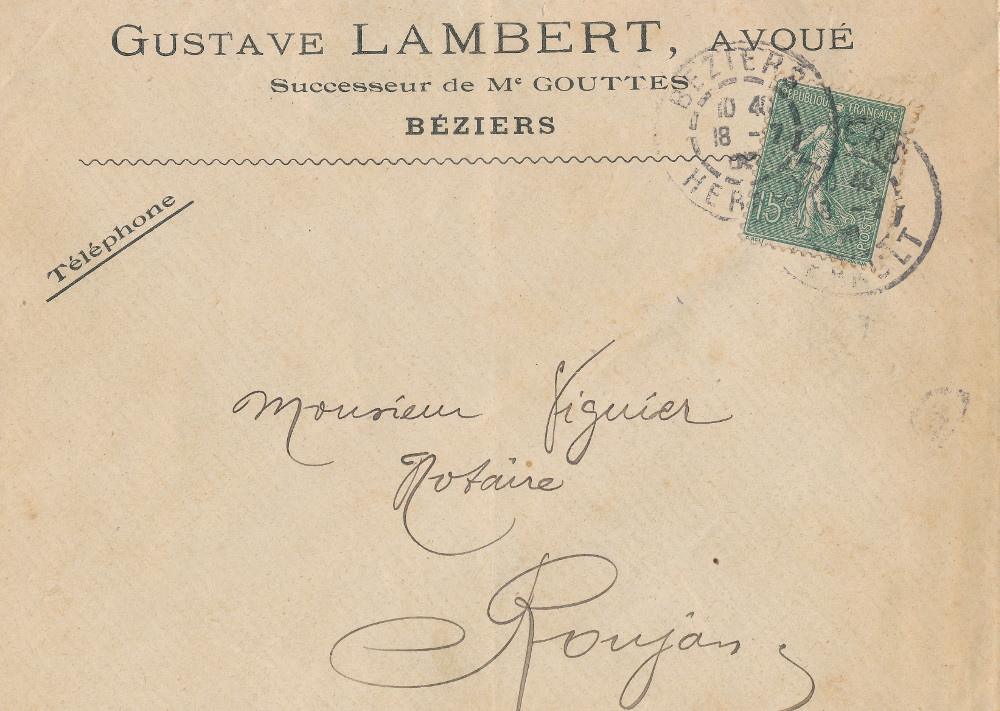 GUSTAVE LAMBERT, AVOUÉ
Successeur de Me GOUTTES
BÉZIERS
Téléphone
BEZIERS
10 40
18 -
HER
REPUBLIQUE FRANÇAISE
15c
POSTES
ERS
40
ERAULT
Monsieur Viguier
Notaire
Roujan